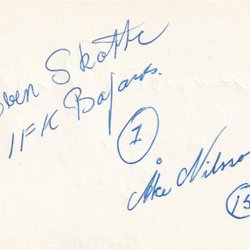 Sven Skotte
IFK Bofors.
7
Åke Nilsson
15